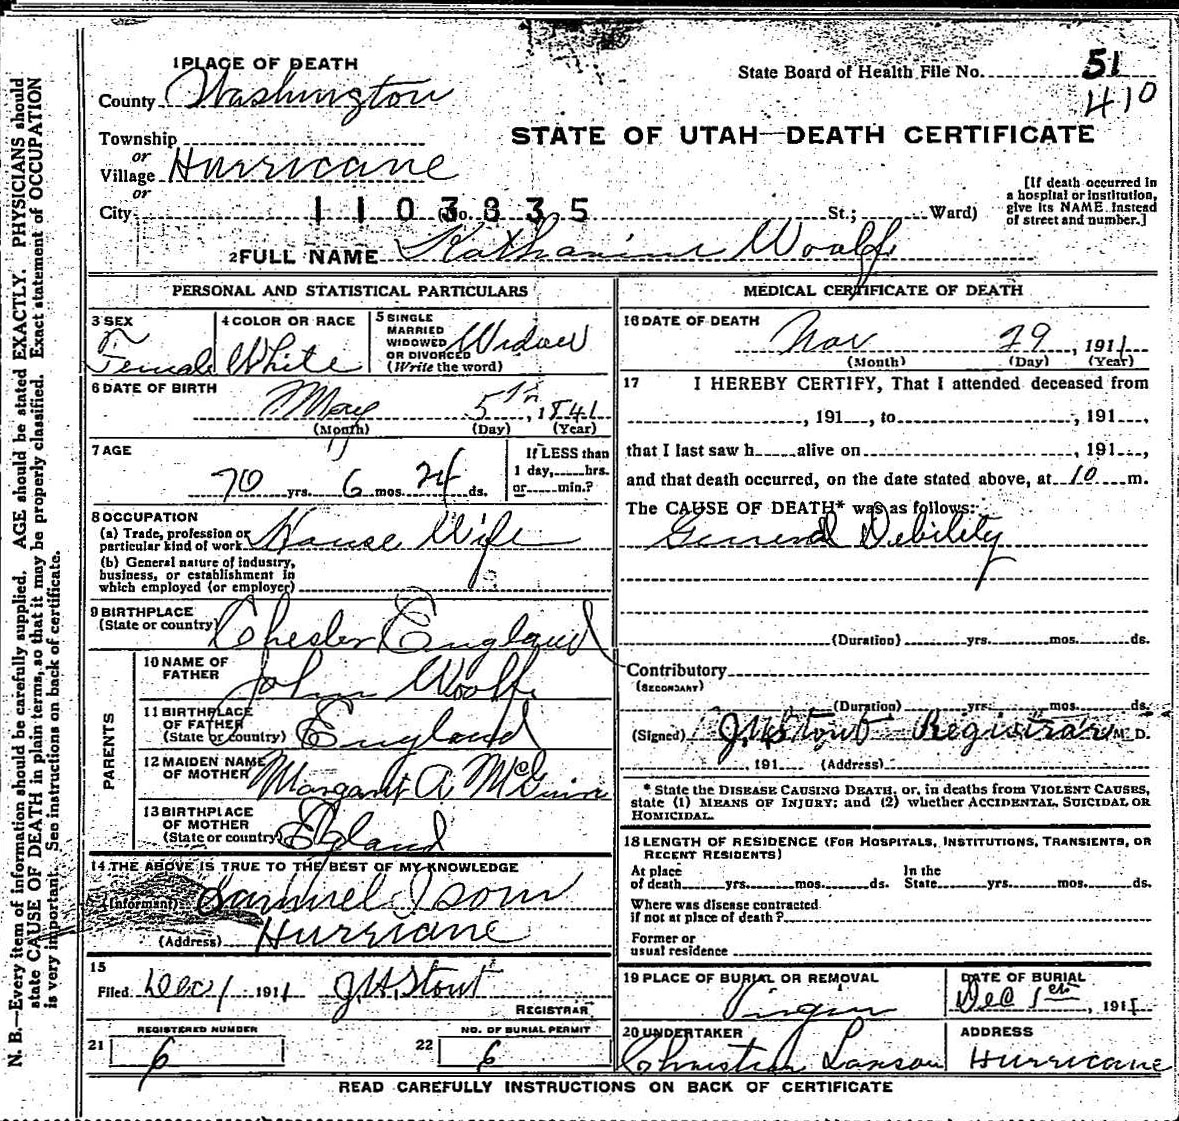 1 PLACE OF DEATH
County Washington
Township
or
Village Hurricane
or
City 1103835 (No. St.; Ward)
State Board of Health File No. 51
410
STATE OF UTAH—DEATH CERTIFICATE
[If death occurred in
a hospital or institution,
give its NAME instead
of street and number.]
2 FULL NAME Katharine Woolfe
PERSONAL AND STATISTICAL PARTICULARS
3 SEX
Female
4 COLOR OR RACE
White
5 SINGLE
MARRIED
WIDOWED
OR DIVORCED
(Write the word)
Widow
6 DATE OF BIRTH
May 5th, 1841
(Month) (Day) (Year)
7 AGE
70 yrs. 6 mos. 24 ds.
If LESS than
1 day, hrs.
or min.?
8 OCCUPATION
(a) Trade, profession or
particular kind of work House Wife
(b) General nature of industry,
business, or establishment in
which employed (or employer)
9 BIRTHPLACE
(State or country) Chester England
PARENTS
10 NAME OF
FATHER John Woolfe
11 BIRTHPLACE
OF FATHER
(State or country) England
12 MAIDEN NAME
OF MOTHER Margaret A.
13 BIRTHPLACE
OF MOTHER
(State or country)
14 THE ABOVE IS TRUE TO THE BEST OF MY KNOWLEDGE
(Informant) Samuel Isom
(Address) Hurricane
15
Filed Dec 1 1911 J.H. Stout
REGISTRAR
REGISTERED NUMBER
21 6
NO. OF BURIAL PERMIT
22 6
MEDICAL CERTIFICATE OF DEATH
16 DATE OF DEATH
Nov 29, 1911
(Month) (Day) (Year)
17 I HEREBY CERTIFY, That I attended deceased from
, 191 , to , 191 ,
that I last saw h alive on , 191 ,
and that death occurred, on the date stated above, at 10 m.
The CAUSE OF DEATH* was as follows:
General Debility
(Duration) yrs. mos. ds.
Contributory
(SECONDARY)
(Duration) yrs. mos. ds.
(Signed) J.H. Stout Registrar M. D.
, 191 (Address)
* State the DISEASE CAUSING DEATH, or, in deaths from VIOLENT CAUSES,
state (1) MEANS OF INJURY; and (2) whether ACCIDENTAL, SUICIDAL OR
HOMICIDAL.
18 LENGTH OF RESIDENCE (FOR HOSPITALS, INSTITUTIONS, TRANSIENTS, OR
RECENT RESIDENTS)
At place
of death yrs. mos. ds.
In the
State yrs. mos. ds.
Where was disease contracted
if not at place of death?
Former or
usual residence
19 PLACE OF BURIAL OR REMOVAL
Virgin
DATE OF BURIAL
Dec 1st, 1911
20 UNDERTAKER
Christian Larson
ADDRESS
Hurricane
READ CAREFULLY INSTRUCTIONS ON BACK OF CERTIFICATE
N. B.—Every item of information should be carefully supplied. AGE should be stated EXACTLY. PHYSICIANS should
state CAUSE OF DEATH in plain terms, so that it may be properly classified. Exact statement of OCCUPATION
is very important. See instructions on back of certificate.